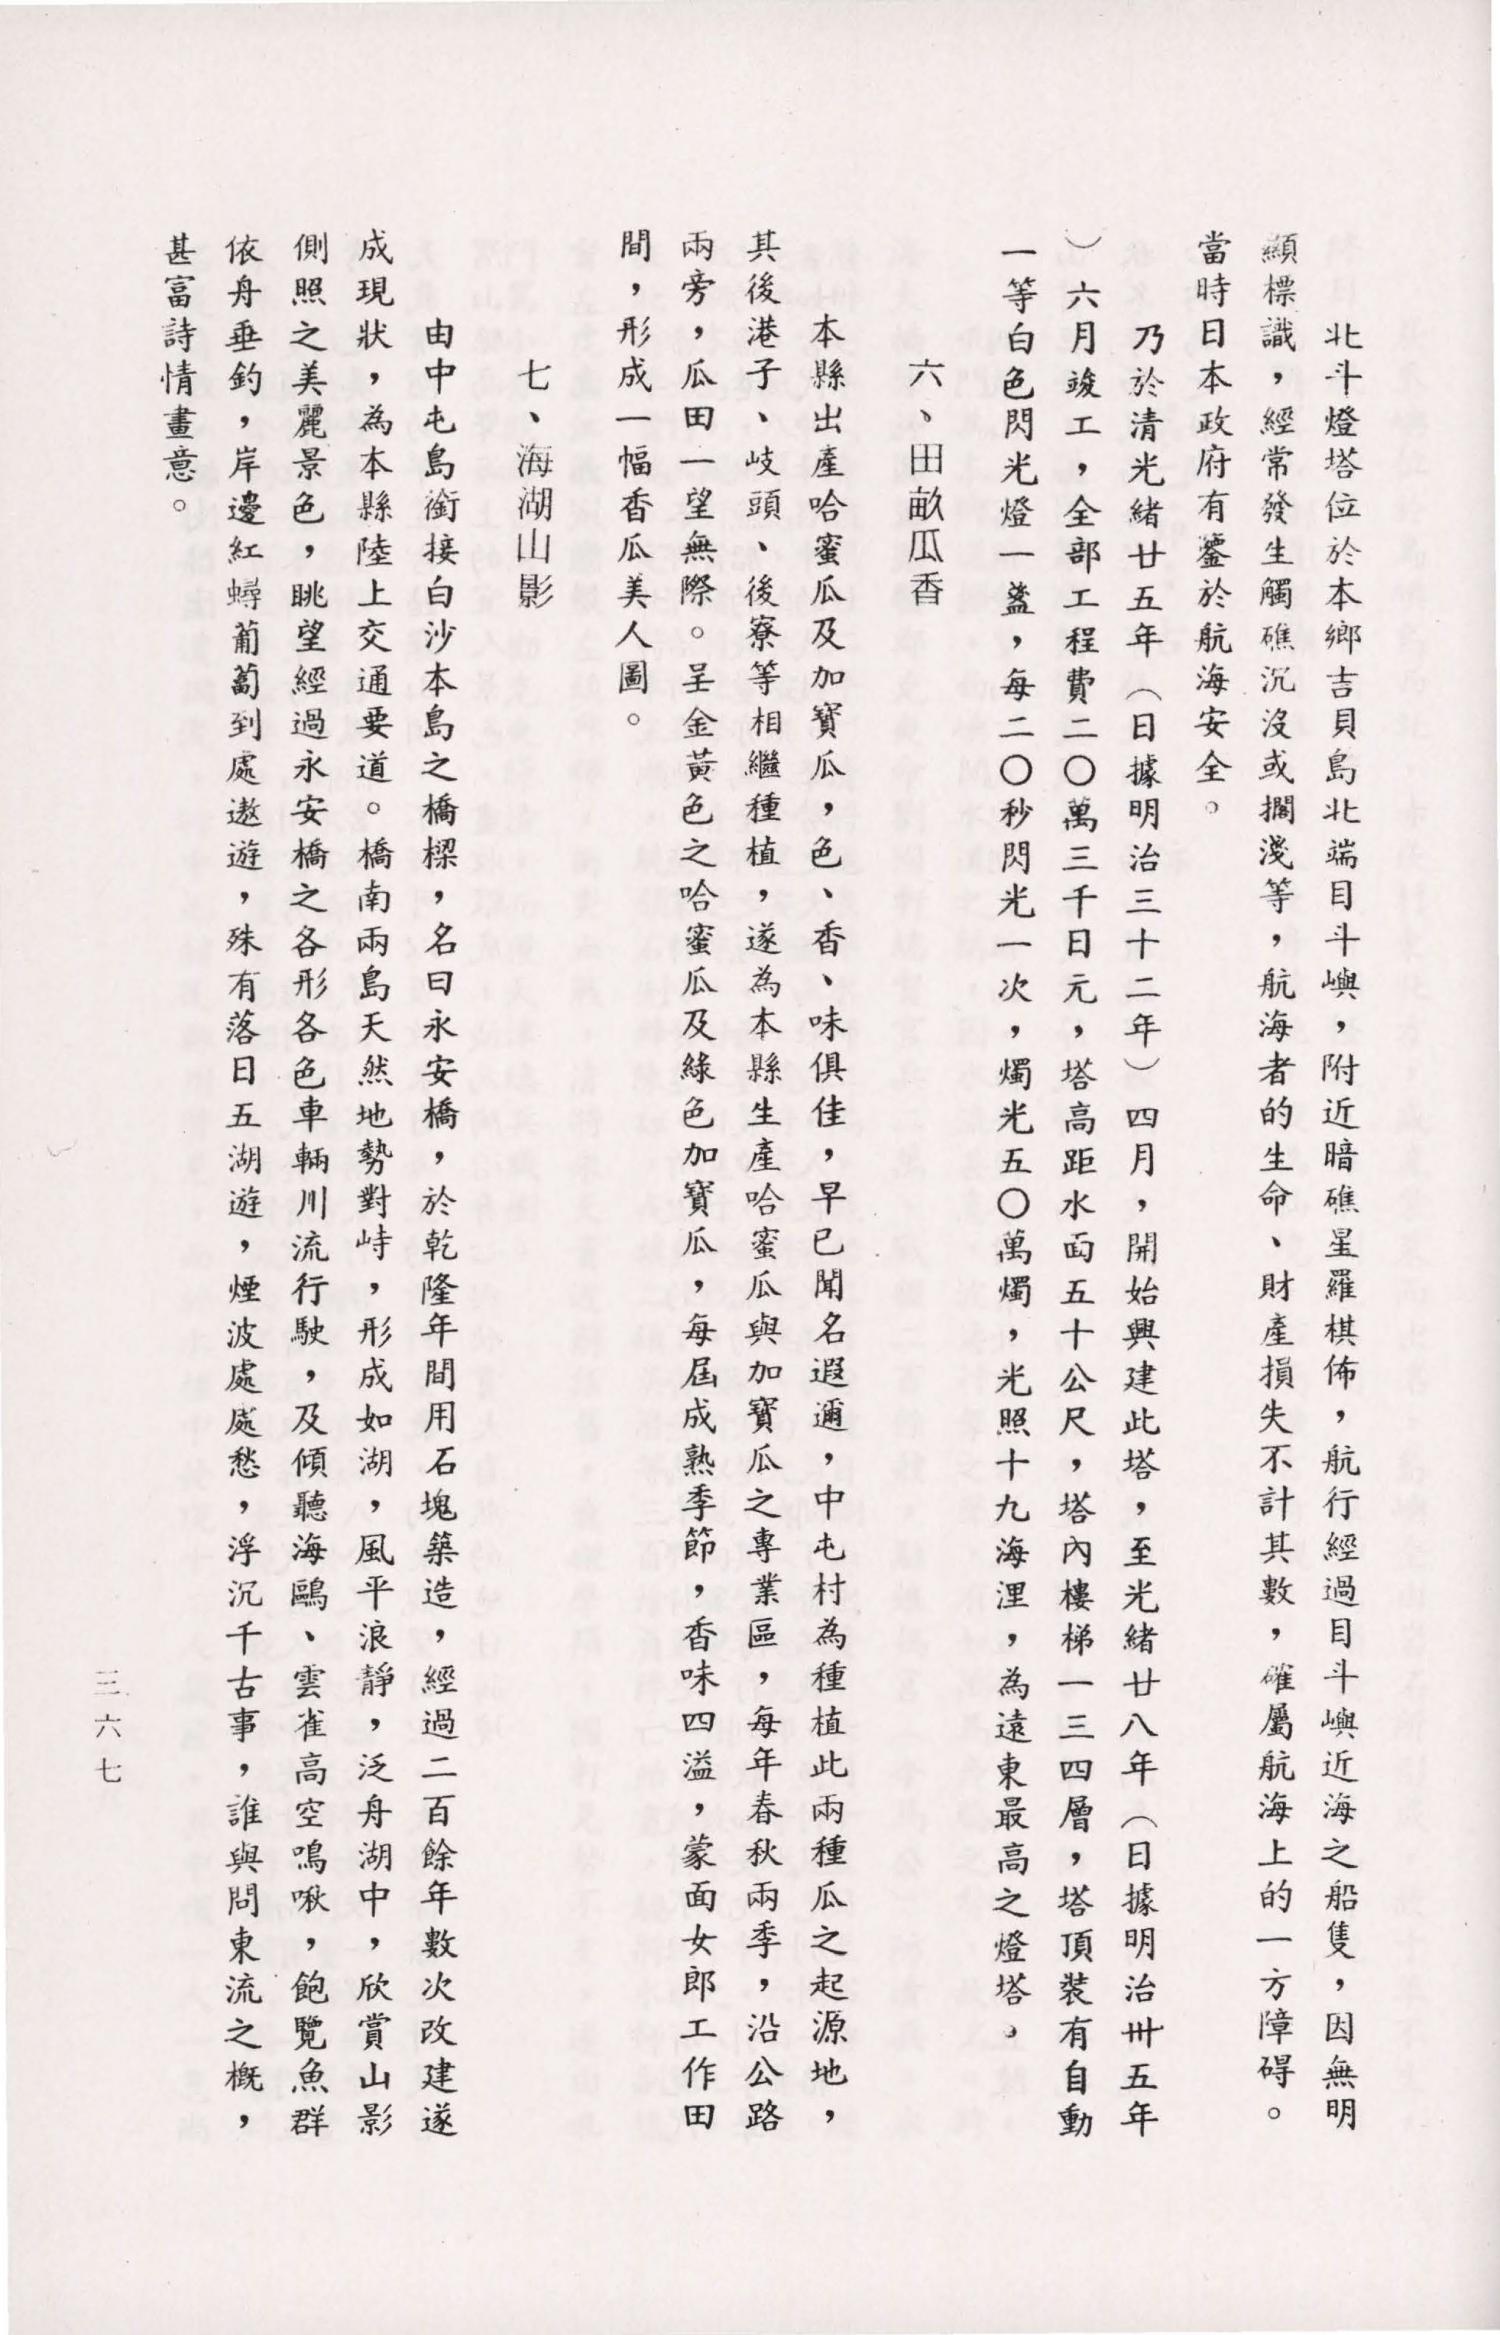 北斗燈塔位於本鄉吉貝島北端目斗嶼，附近暗礁星羅棋佈，航行經過目斗嶼近海之船隻，因無明
顯標識，經常發生觸礁沉沒或擱淺等，航海者的生命、財產損失不計其數，確屬航海上的一方障碍。
當時日本政府有鑒於航海安全。
乃於清光緒廿五年（日據明治三十二年）四月，開始興建此塔，至光緒廿八年（日據明治卅五年
）六月竣工，全部工程費二〇萬三千日元，塔高距水面五十公尺，塔內樓梯一三四層，塔頂裝有自動
一等白色閃光燈一盞，每二〇秒閃光一次，燭光五〇萬燭，光照十九海浬，為遠東最高之燈塔。
六、田畝瓜香
本縣出產哈蜜瓜及加寶瓜，色、香、味俱佳，早已聞名遐邇，中屯村為種植此兩種瓜之起源地，
其後港子、岐頭、後寮等相繼種植，遂為本縣生產哈蜜瓜與加寶瓜之專業區，每年春秋兩季，沿公路
兩旁，瓜田一望無際。呈金黃色之哈蜜瓜及綠色加寶瓜，每屆成熟季節，香味四溢，蒙面女郎工作田
間，形成一幅香瓜美人圖。
七、海湖山影
由中屯島銜接白沙本島之橋樑，名曰永安橋，於乾隆年間用石塊築造，經過二百餘年數次改建遂
成現狀，為本縣陸上交通要道。橋南兩島天然地勢對峙，形成如湖，風平浪靜，泛舟湖中，欣賞山影
側照之美麗景色，眺望經過永安橋之各形各色車輛川流行駛，及傾聽海鷗、雲雀高空鳴啾，飽覽魚群
依舟垂釣，岸邊紅蟳葡萄到處遨遊，殊有落日五湖遊，煙波處處愁，浮沉千古事，誰與問東流之概，
甚富詩情畫意。
三六七